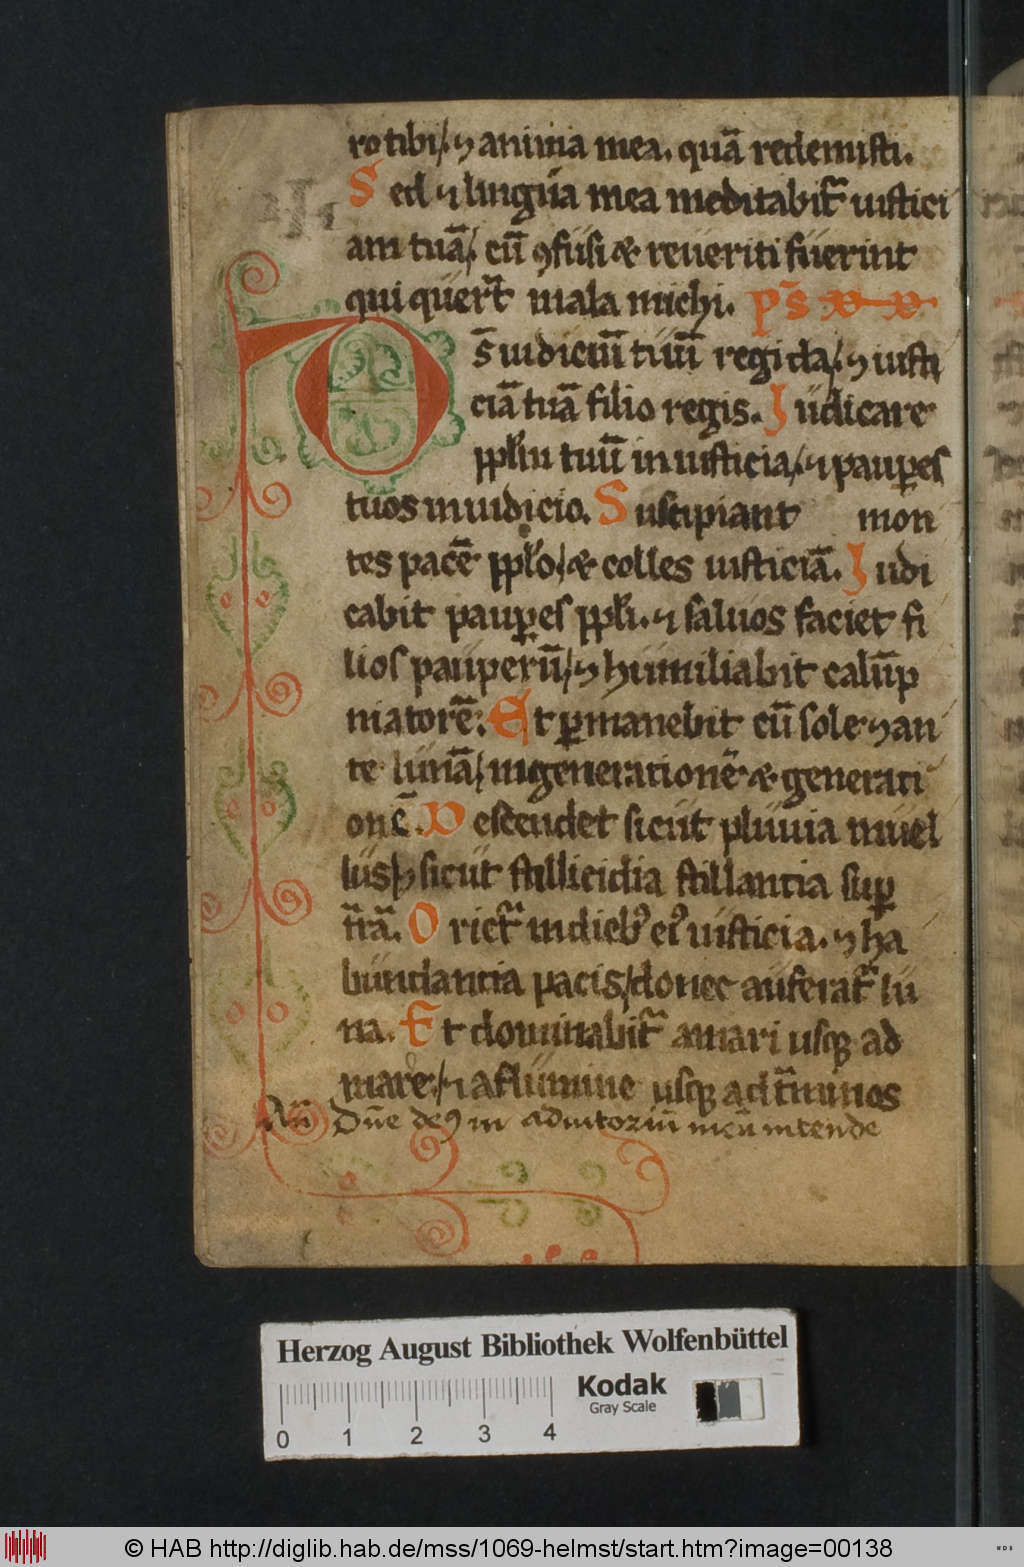 ro tibi / ⁊ anima mea. quā redemisti.
Sed ⁊ lingua mea meditabit᷑ iustici
am tuā / cū ꝯfusi & reueriti fuerint
qui querūt mala michi. ps
Ds iudiciū tuū regi da / ⁊ iusti
ciā tuā filio regis. Iudicare
pplm tuū in iusticia / ⁊ pauꝑes
tuos in iudicio. Suscipiant mon
tes pacē pplo / & colles iusticiā. Iudi
cabit pauꝑes ppli. ⁊ saluos faciet fi
lios pauperū / ⁊ humiliabit calūp
niatorē. Et ꝑmanebit cū sole ⁊ an
te lunā / in generationē & generati
onē. Descendet sicut pluuia in uel
lus / ⁊ sicut stillicidia stillantia suꝑ
t᷑rā. Oriet᷑ in dieb᷒ ei᷒ iusticia. ⁊ ha
bundantia pacis / donec auferat᷑ lu
na. Et dominabit᷑ a mari usqꝫ ad
mare / ⁊ a flumine usqꝫ ad t᷑minos
Añ Dn̄e deꝰ in adiutoriū meū intende
Herzog August Bibliothek Wolfenbüttel
Kodak
Gray Scale
0 1 2 3 4
© HAB http://diglib.hab.de/mss/1069-helmst/start.htm?image=00138